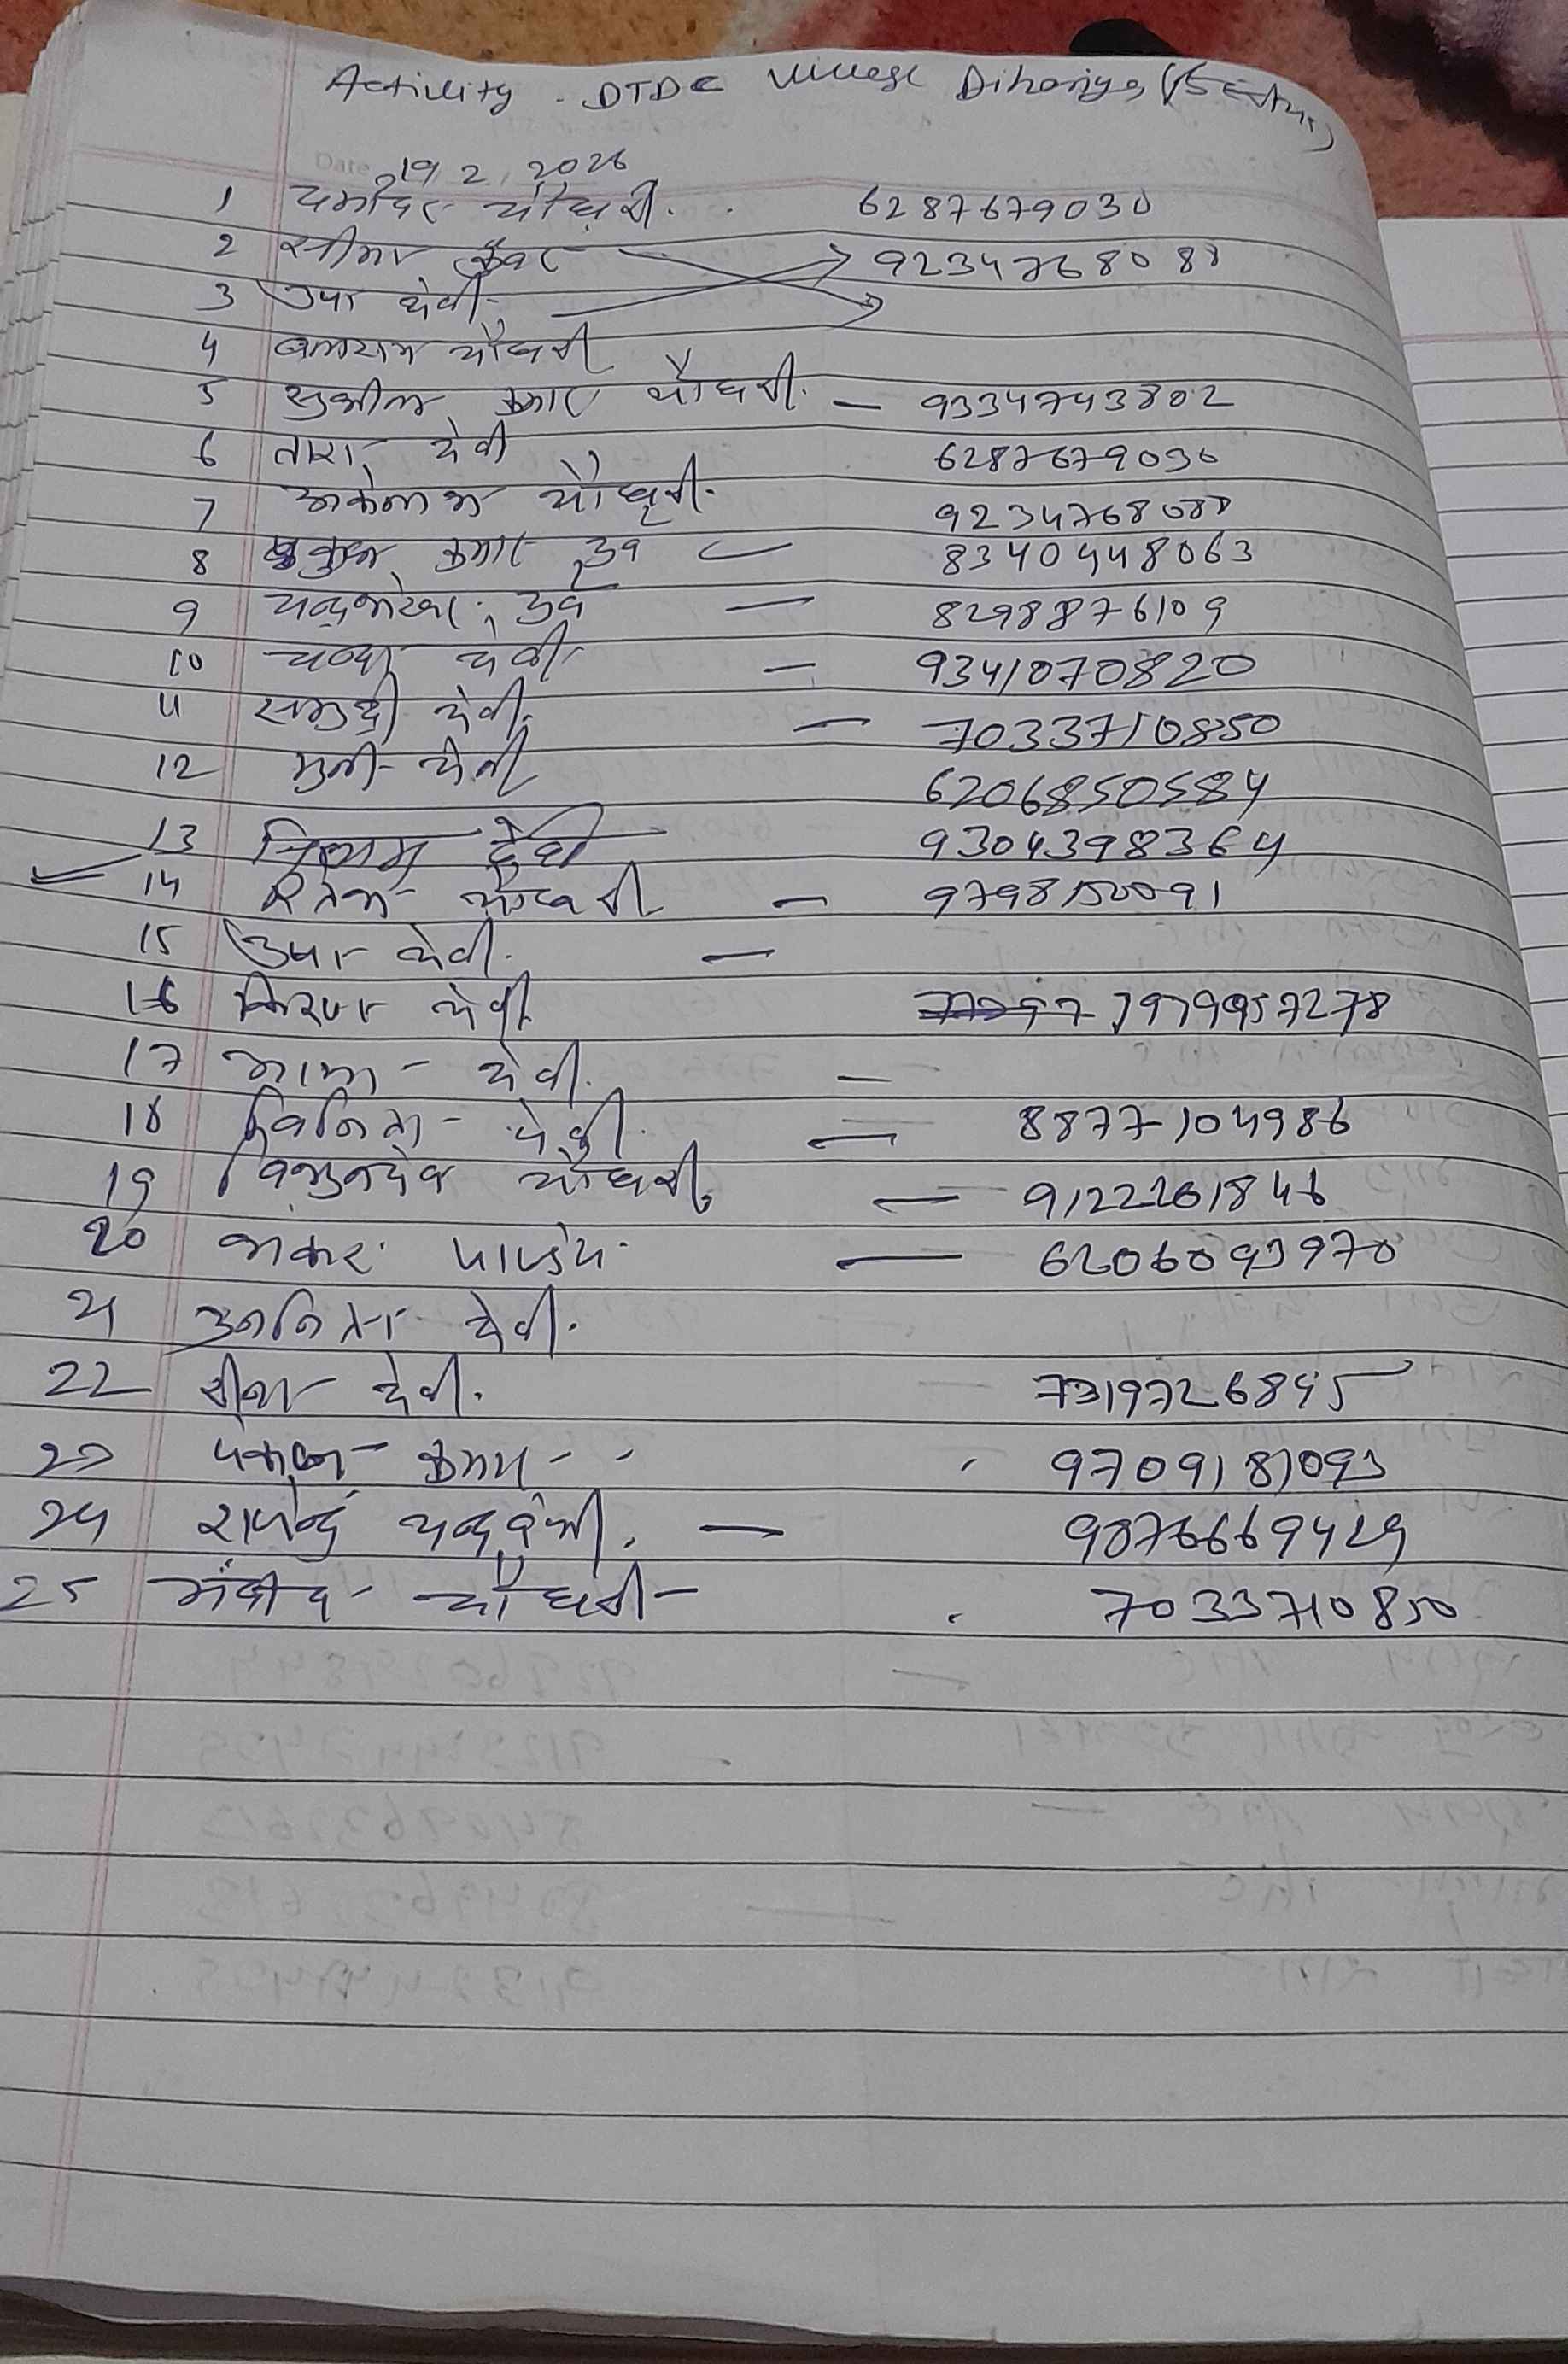 Activity - DTDC Village Dihariya
Date 19, 2, 2026
1 चौधरी. 6287679030
2 सीमा कुंवर 9234768088
3 उषा देवी
4 बलराम चौधरी
5 सुशील कुमार चौधरी. - 9334743802
6 तारा देवी 6287679030
7 चौधरी. 9234768088
8 कुमार उर्व - 8340448063
9 चन्द्रशेखर उर्व - 8298876109
10 चम्पा देवी - 9341070820
11 समुद्री देवी. - 7033710850
12 मुन्नी देवी 6206850584
13 देवी 9304398364
14 रितेश चौधरी - 9798150091
15 उषा देवी. -
16 किरण देवी 7979957278
17 आशा देवी. -
18 विनिता देवी. - 8877104986
19 चौधरी - 9122261846
20 शंकर पाण्डेय - 6206093970
21 अनिता देवी.
22 रीना देवी. 7319726845
23 पंकज कुमार 9709181093
24 राजेन्द्र चन्द्रवंशी. - 9076669429
25 संदीप चौधरी 7033710850